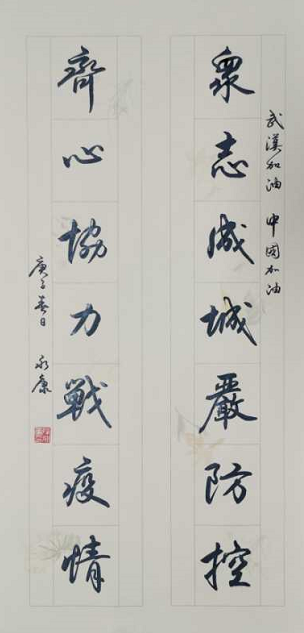 武漢加油 中國加油
衆志成城嚴防控
齊心協力戰疫情
庚子春日 永康